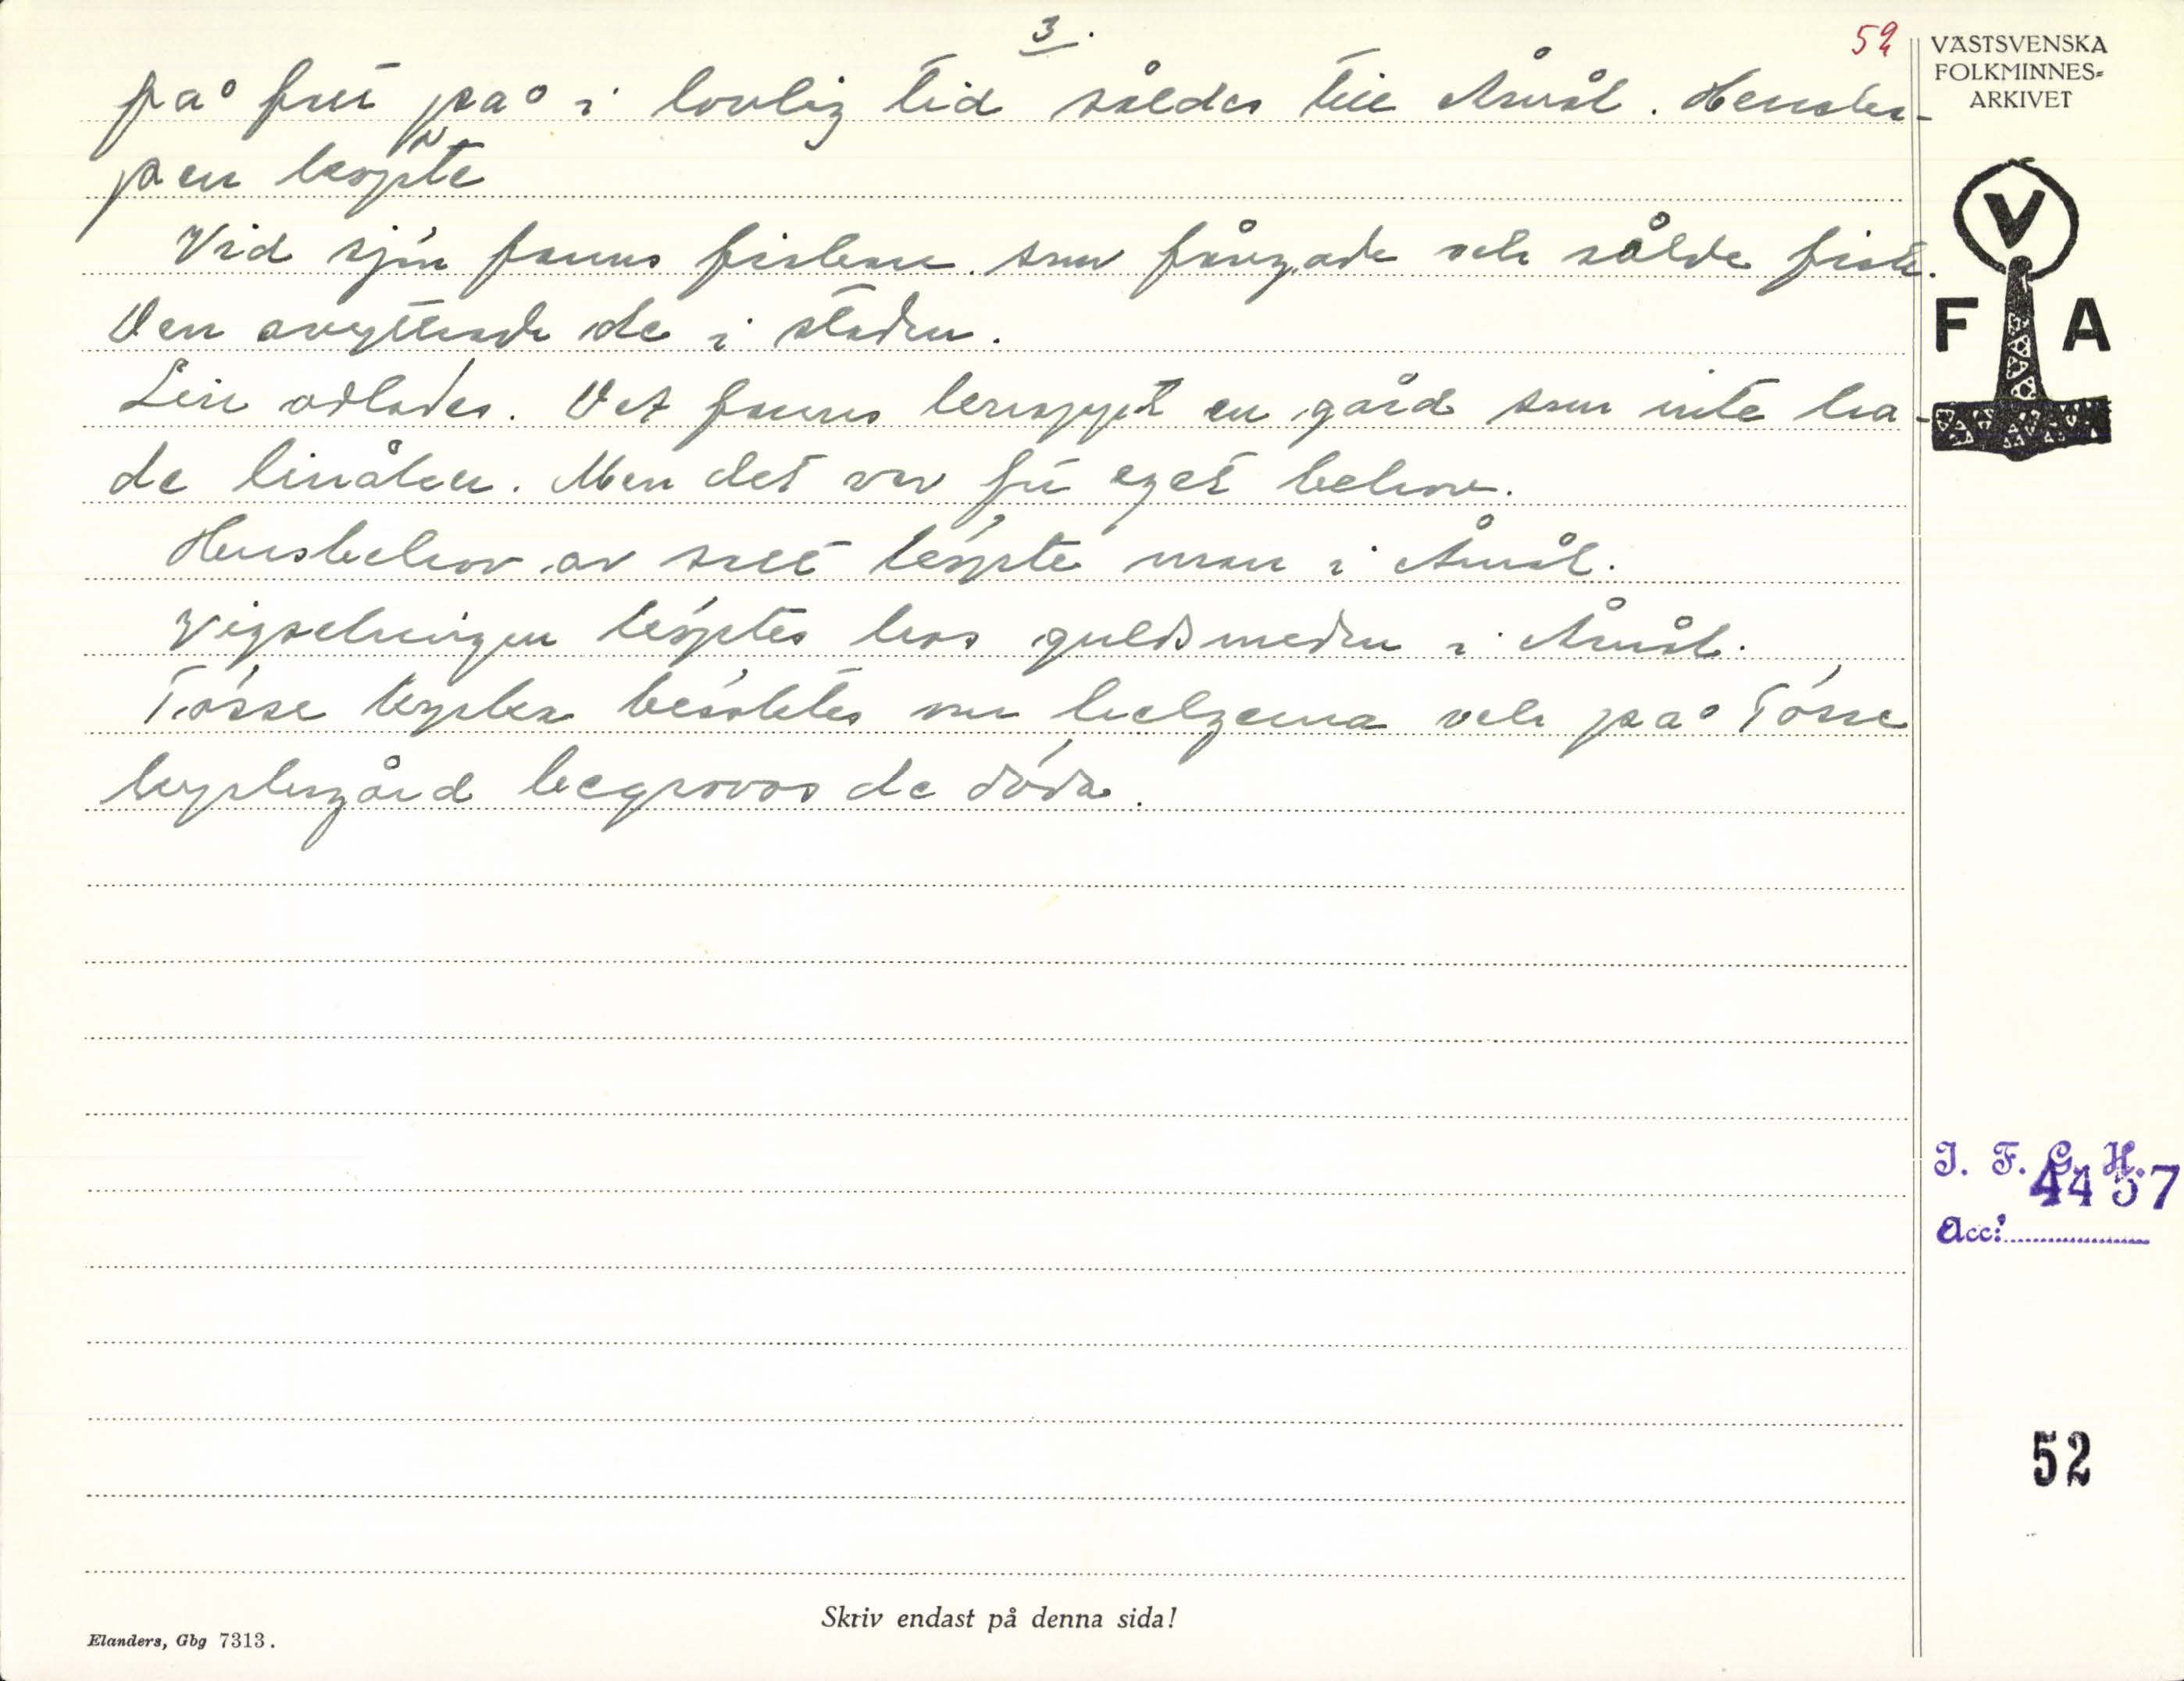 3.
52
på fritt på i lovlig tid såldes till Åmål. Henska-
pen köpte
Vid sjön fanns fiskare som fångade och sålde fisk.
Den avyttrade de i staden.
Lin odlades. Det fanns knappt en gård som inte ha-
de linåker. Men det var för eget behov.
Husbehov av salt köpte man i Åmål.
Vigselringen köptes hos guldsmeden i Åmål.
Tösse kyrka besöktes om helgerna och på Tösse
kyrkogård begrovos de döda.
VÄSTSVENSKA
FOLKMINNES-
ARKIVET
V
F A
I. F. G. H.
4457
Acc:
52
Skriv endast på denna sida!
Elanders, Gbg 7313.